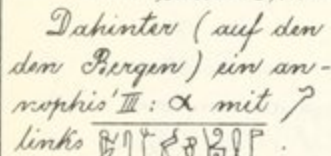 Dahinter (auf den
den Bergen) ein an-
nophis' III : α mit
links